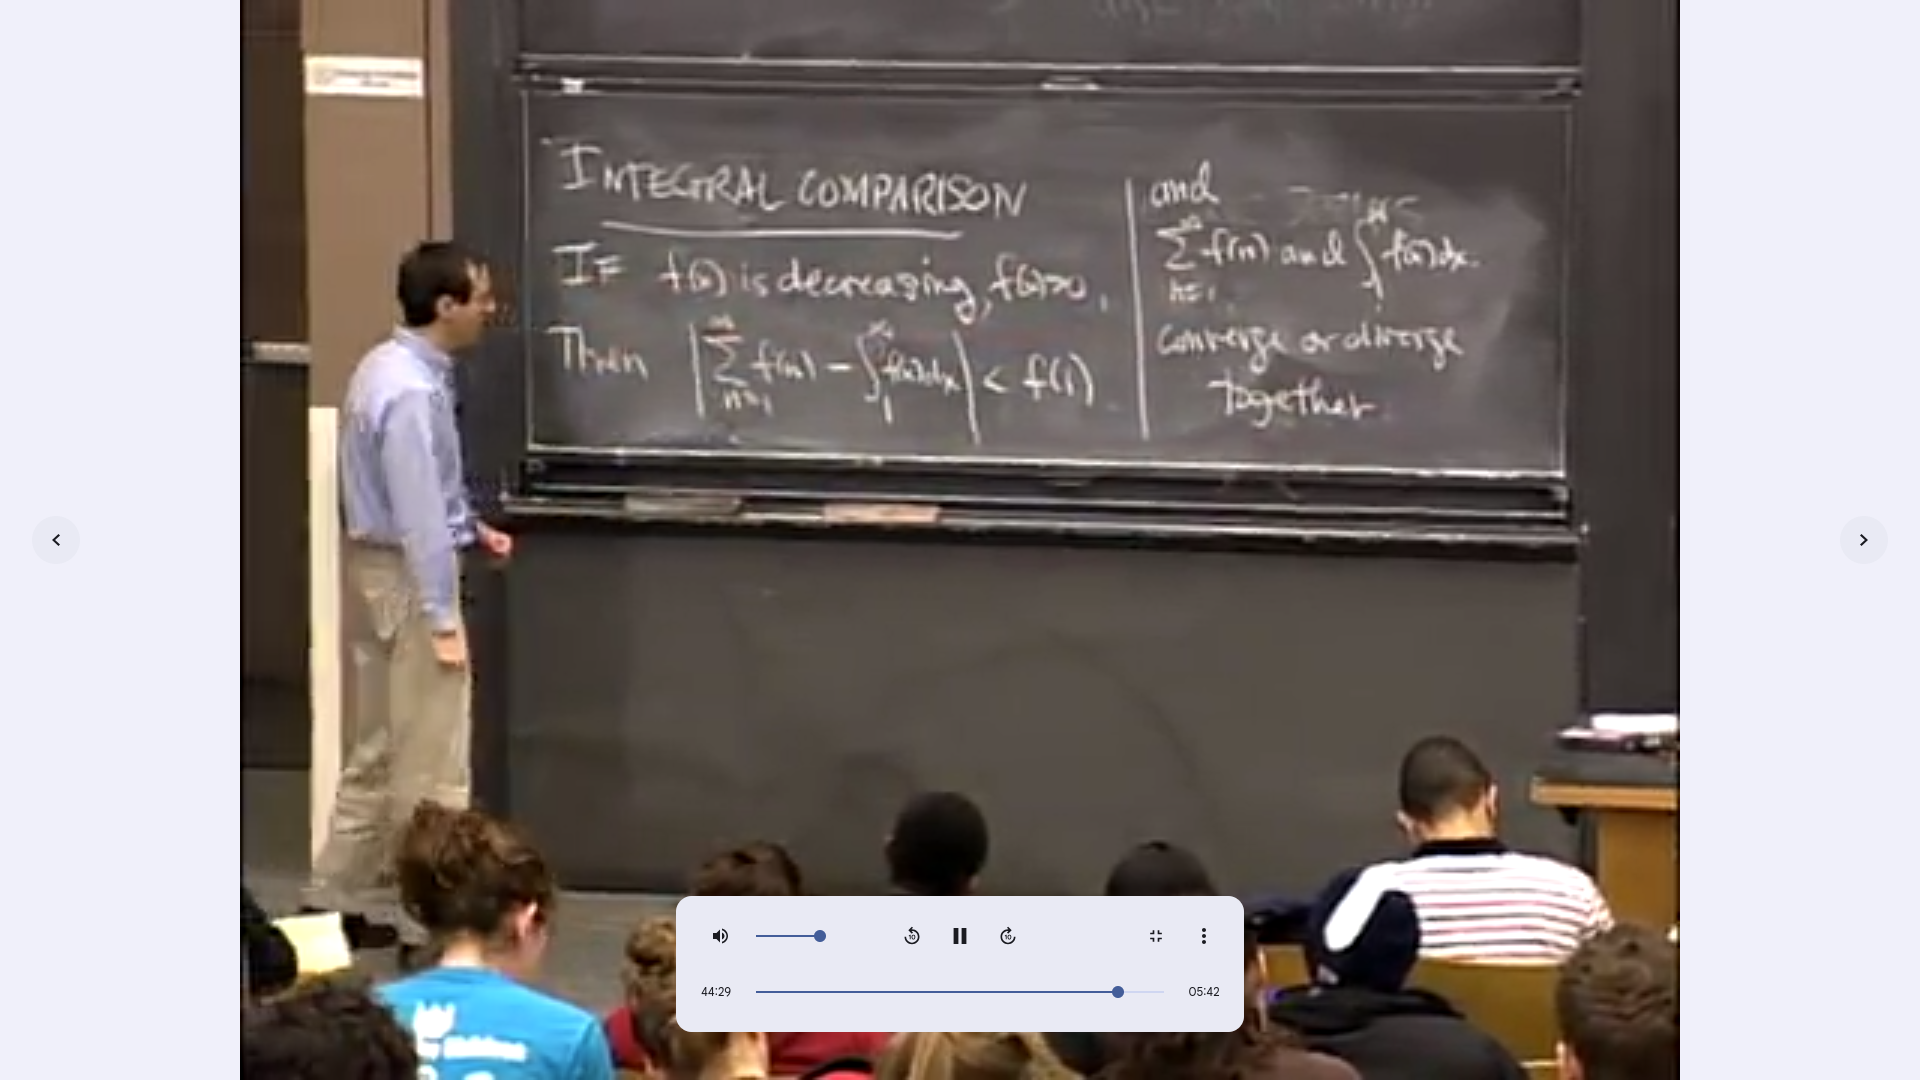 INTEGRAL COMPARISON
If f(x) is decreasing, f(x)>0,
Then |∑_{n=1}^{∞} f(n) − ∫_1^∞ f(x)dx| < f(1)
and
∑_{n=1}^{∞} f(n) and ∫_1^∞ f(x)dx.
converge or diverge
together.
10
10
44:29
05:42